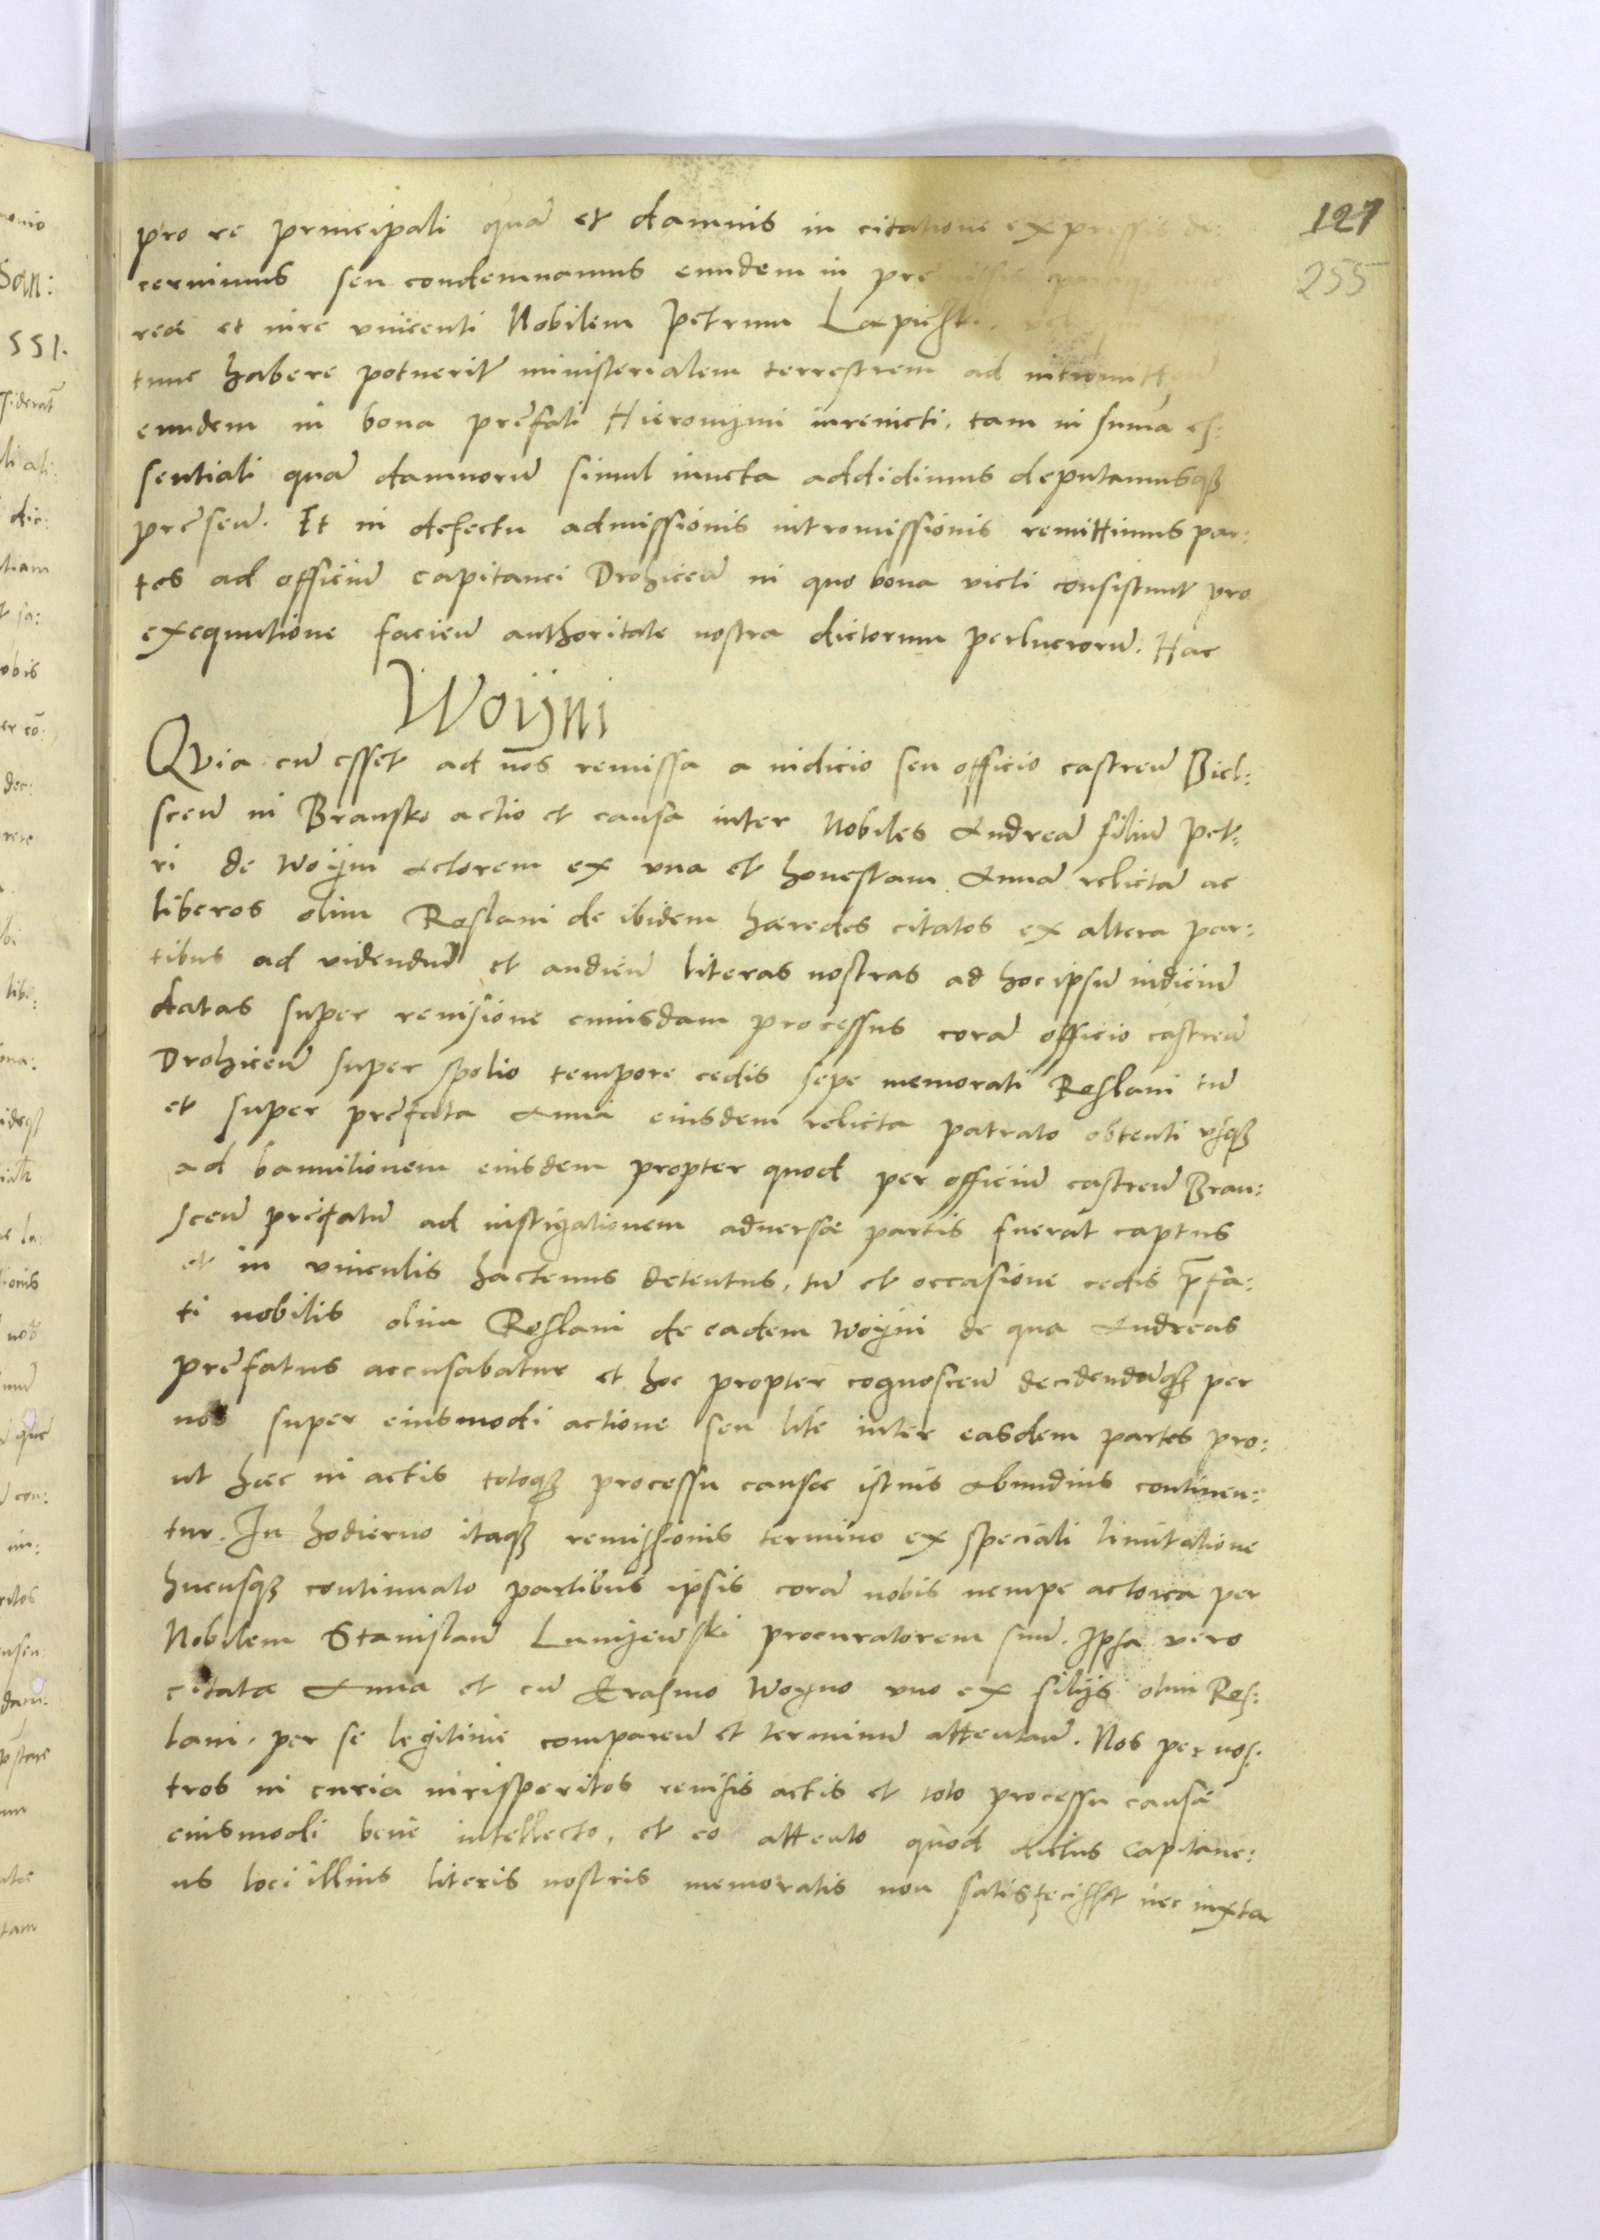 127
255
pro re principali quā et damnis in citatione expressis de:
cernimus seu condemnamus eundem in
rea et iure vincenti Nobilem Petrum
tunc habere potuerit ministerialem terrestrem ad intromittendū
eundem in bona prēfati Hieronymi iurevicti, tam in summa es:
sentiali quā damnorū simul iuncta addidimus deputamusqȝ
prēseñ. Et in defectu admissionis intromissionis remittimus par:
tes ad officiū capitanei Drohiceñ in quo bona victi consistunt pro
exequutione facieñ authoritate nostra dictorum perlucrorū. Hac
Woÿni
Qvia cū esset ad nos remissa a iudicio seu officio castreñ Biel:
sceñ in Bransko actio et causa inter Nobiles Andreā filiū Pet:
ri de Woÿni Actorem ex vna et honestam Annā relictā ac
liberos olim Roslani de ibidem hæredes citatos ex altera par:
tibus ad videndū et audieñ literas nostras ad hoc ipsū iudiciū
datas super revisione cuiusdam processus corā officio castreñ
Drohiceñ super spolio tempore cedis sepe memorati Roslani tū
et super prēfata Anna eiusdem relicta patrato obtenti vsqȝ
ad bannitionem eiusdem propter quod per officiū castreñ Bran:
sceñ prēfatū ad instigationem adversæ partis fuerat captus
et in vinculis hactenus detentus, tū et occasione cedis p̄fa:
ti nobilis olim Roslani de eadem Woÿni de qua Andreas
prēfatus accusabatur et hoc propter cognosceñ decidendūqȝ per
nos super eiusmodi actione seu lite inter easdem partes pro:
ut hæc in actis totoqȝ processu causæ istius Abundius continen:
tur. In hodierno itaqȝ remissionis termino ex speciali limitatione
hucusqȝ continuato partibus ipsis corā nobis nempe actorea per
Nobilem Stanislaū Luniewski procuratorem suū. Ipsa vero
citata Anna et cū Erasmo Woyno vno ex filijs olim Ros:
lani. per se legitime compareñ et terminū attentañ. Nos per nos:
tros in curia iurisperitos revisis actis et toto processu causæ
eiusmodi bene intellecto, et eo attento quod dictus Capitane:
us loci illius literis nostris memoratis non satisfecisset nec iuxta